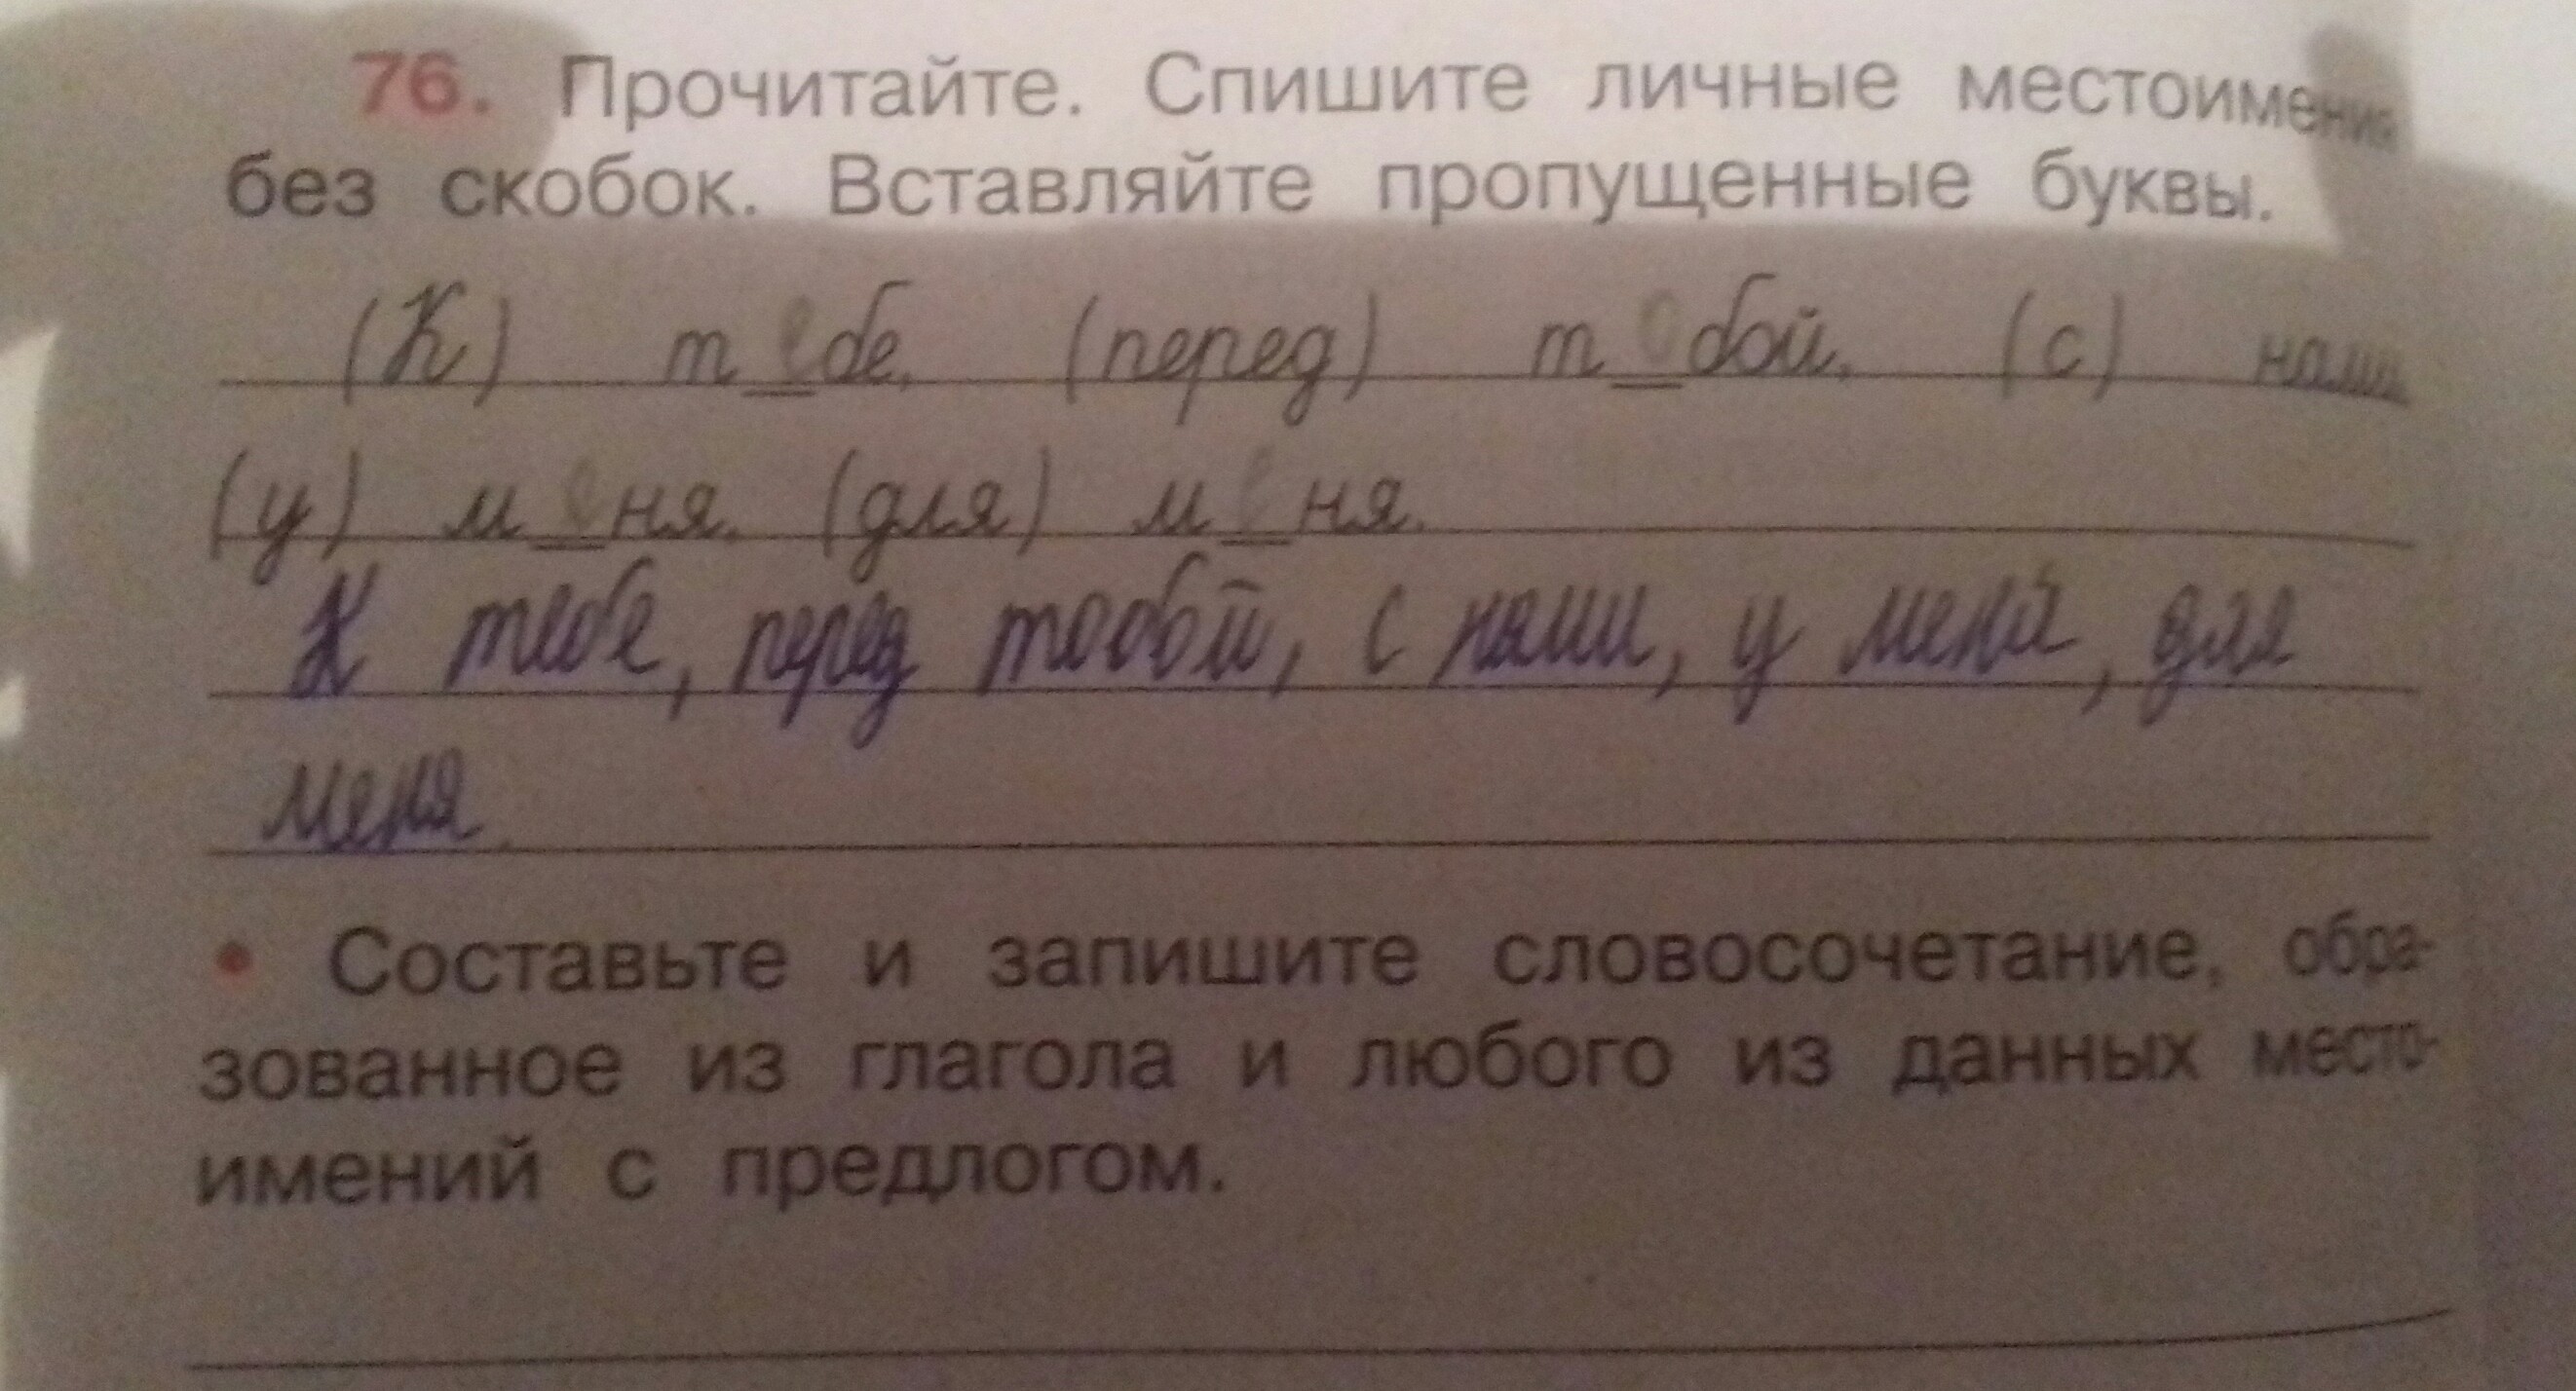 76. Прочитайте. Спишите личные местоимения
без скобок. Вставляйте пропущенные буквы.
(К) т_е_бе. (перед) т_о_бой. (с) нами
(у) м_е_ня. (для) м_е_ня.
К тебе, перед тобой, с нами, у меня, для
меня.
• Составьте и запишите словосочетание, обра-
зованное из глагола и любого из данных место-
имений с предлогом.